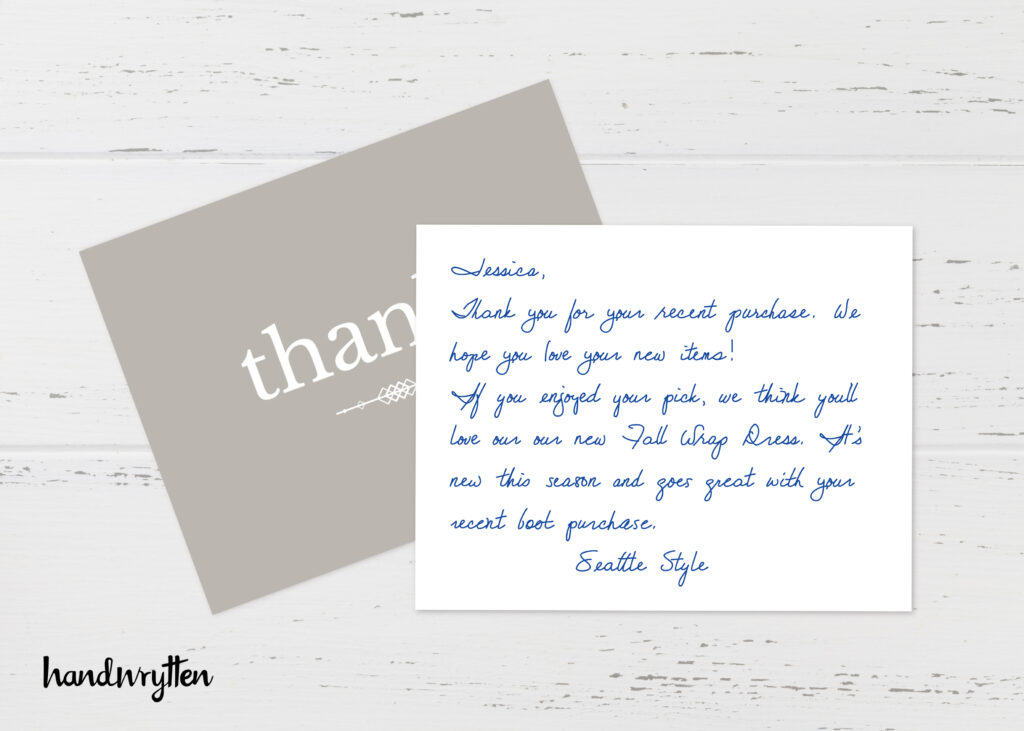 than
Jessica,
Thank you for your recent purchase. We
hope you love your new items!
If you enjoyed your pick, we think youll
love our our new Fall Wrap Dress. It's
new this season and goes great with your
recent boot purchase.
Seattle Style
handwrytten